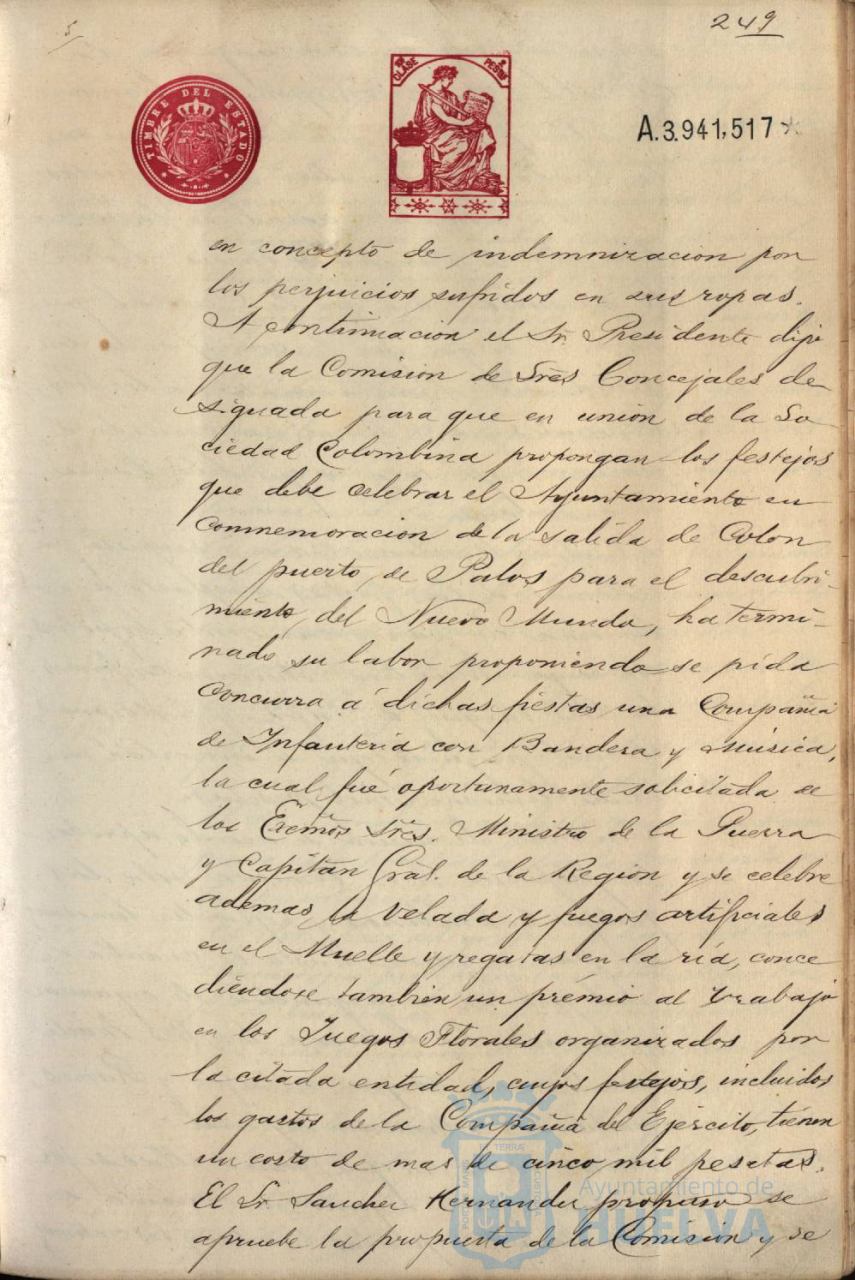 5
249
TIMBRE DEL ESTADO
CLASE
PESETAS
A.3.941,517
en concepto de indemnizacion por
los perjuicios sufridos en sus ropas.
A continuacion el Sr. Presidente dijo
que la Comision de Sres Concejales de
signada para que en union de la So
ciedad Colombina propongan los festejos
que debe celebrar el Ayuntamiento en
conmemoracion de la salida de Colon
del puerto de Palos para el descubri-
miento del Nuevo Mundo, ha termi-
nado su labor proponiendo se pida
concurra á dichas fiestas una Compañia
de Infanteria con Bandera y Música,
la cual fué oportunamente solicitada de
los Excmos Sres. Ministro de la Guerra
y Capitan Gral. de la Region y se celebre
ademas la velada y fuegos artificiales
en el Muelle y regatas en la ria, conce
diéndose tambien un prémio al trabajo
en los Juegos Florales organizados por
la citada entidad, cuyos festejos, incluidos
los gastos de la Compañia del Ejército, tienen
un costo de mas de cinco mil pesetas.
El Sr. Sanchez Hernandez propuso se
apruebe la propuesta de la Comision y se
Ayuntamiento de
HUELVA